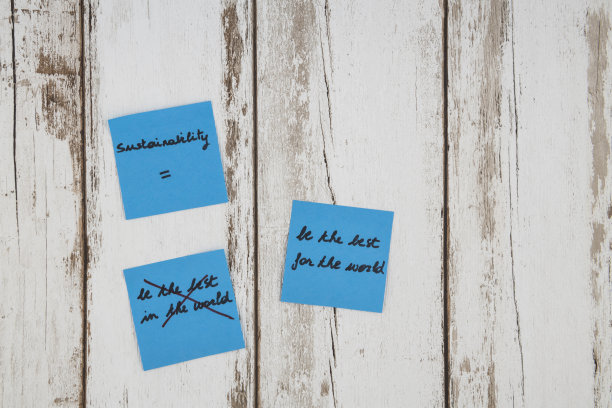 Sustainability
=
be the best
in the world
be the best
for the world